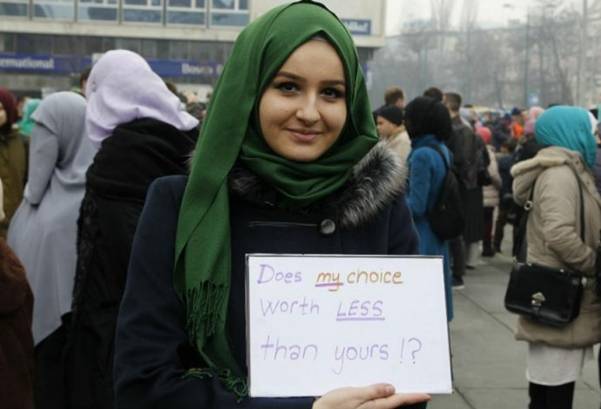 rnational
Bos
Does my choice
worth LESS
than yours!?